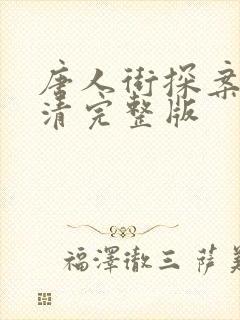 唐人街探案
清完整版
福澤徹三 薩美